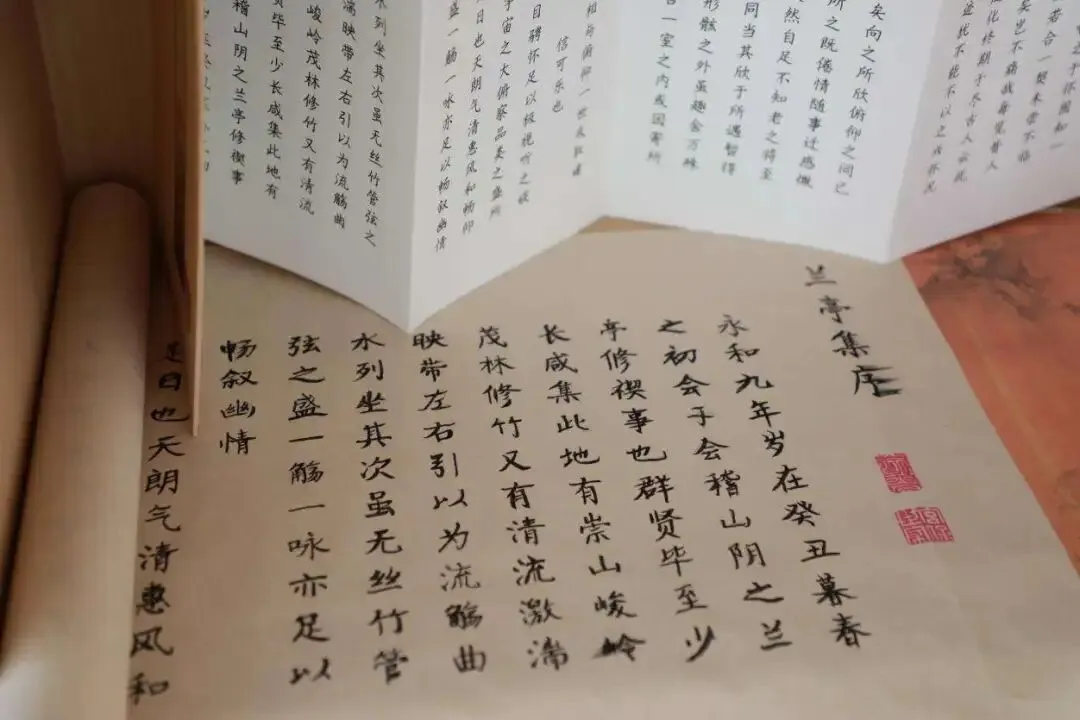 于怀固知一
若合一契未尝不临
矣岂不痛哉每览昔人
化终期于尽古人云死
迹犹不能不以之兴怀况
矣向之所欣俯仰之间已
所之既倦情随事迁感慨
然自足不知老之将至
同当其欣于所遇暂得
形骸之外虽趣舍万殊
言一室之内或因寄所
相与俯仰一世或取诸
信可乐也
目骋怀足以极视听之娱
宇宙之大俯察品类之盛所
日也天朗气清惠风和畅仰
盛一觞一咏亦足以畅叙幽情
水列坐其次虽无丝竹管弦之
湍映带左右引以为流觞曲
峻岭茂林修竹又有清流
毕至少长咸集此地有
稽山阴之兰亭修禊事
兰亭集序
永和九年岁在癸丑暮春
之初会于会稽山阴之兰
亭修禊事也群贤毕至少
长咸集此地有崇山峻岭
茂林修竹又有清流激湍
映带左右引以为流觞曲
水列坐其次虽无丝竹管
弦之盛一觞一咏亦足以
畅叙幽情
是日也天朗气清惠风和